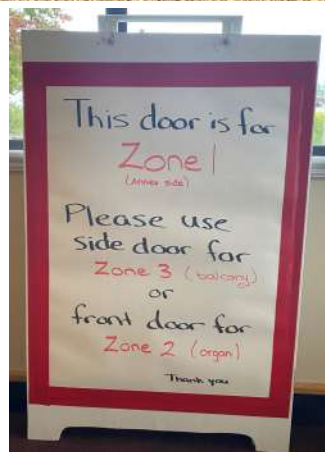 This door is for
Zone 1
(Annex side)
Please use
side door for
Zone 3 (balcony)
or
front door for
Zone 2 (organ)
Thank you